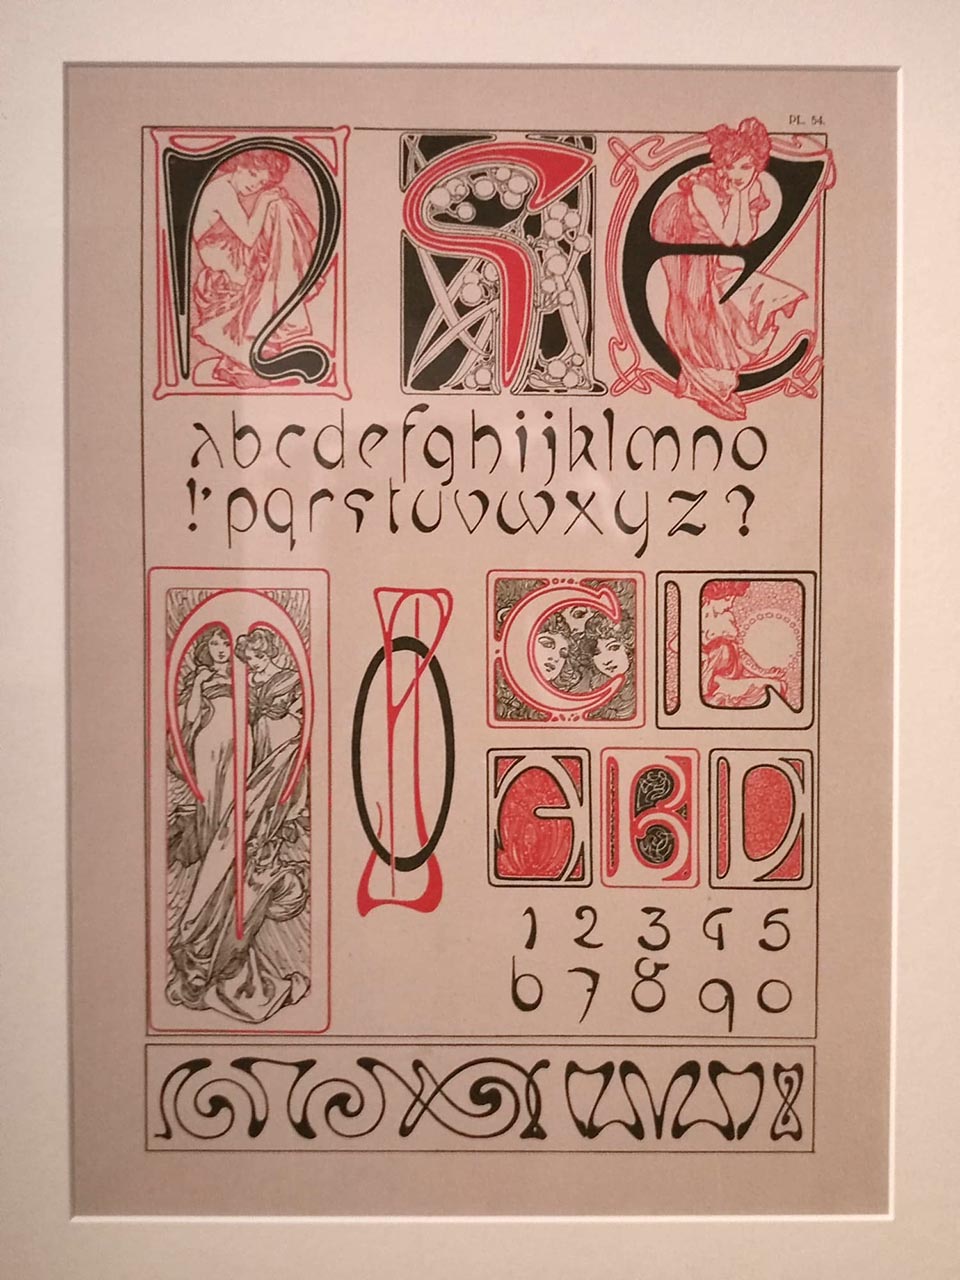 PL. 54.
n S E
abcdefghijklmno
!'pqrstuvwxyz?
M C L
A B D
1 2 3 4 5
6 7 8 9 0